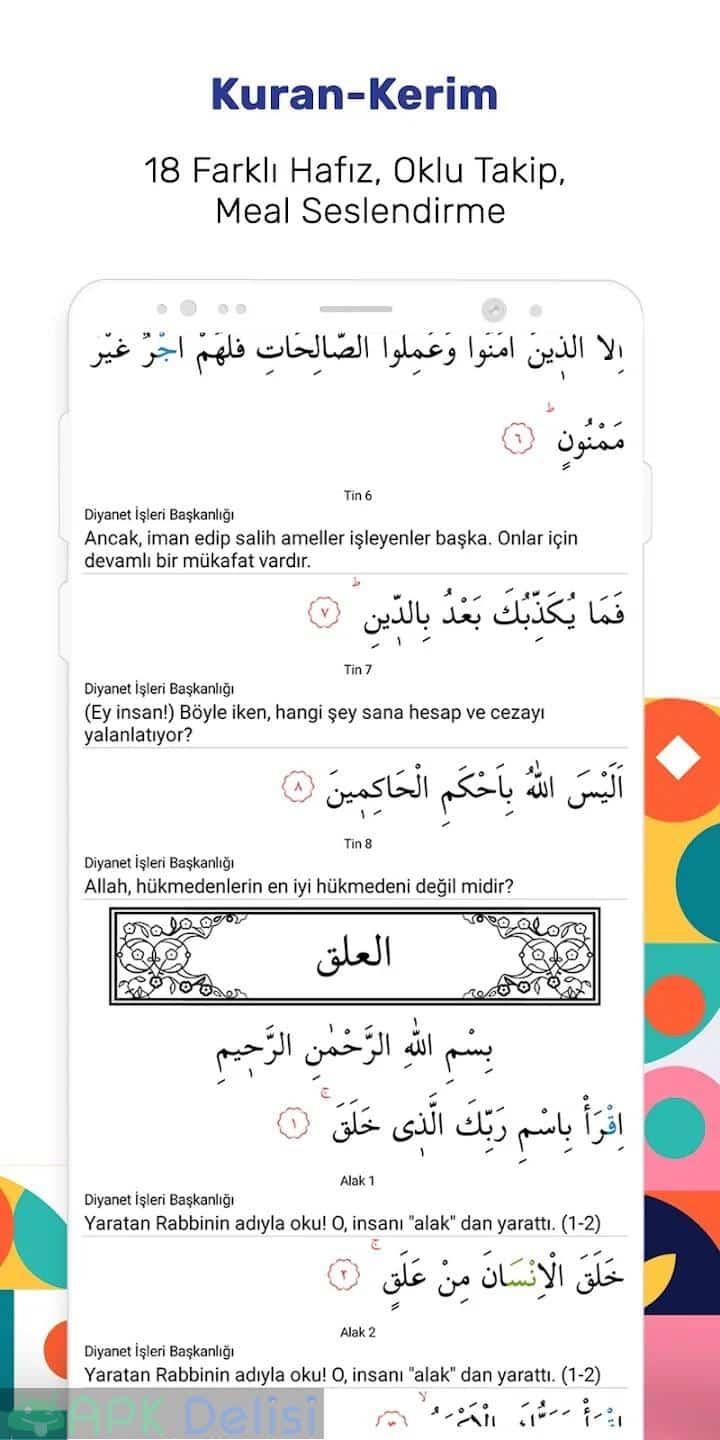 Kuran-Kerim
18 Farklı Hafız, Oklu Takip,
Meal Seslendirme
اِلَّا الَّذ۪ينَ اٰمَنُوا وَعَمِلُوا الصَّالِحَاتِ فَلَهُمْ اَجْرٌ غَيْرُ
مَمْنُونٍۜ ﴿٦﴾
Tin 6
Diyanet İşleri Başkanlığı
Ancak, iman edip salih ameller işleyenler başka. Onlar için
devamlı bir mükafat vardır.
فَمَا يُكَذِّبُكَ بَعْدُ بِالدّ۪ينِۜ ﴿٧﴾
Tin 7
Diyanet İşleri Başkanlığı
(Ey insan!) Böyle iken, hangi şey sana hesap ve cezayı
yalanlatıyor?
اَلَيْسَ اللّٰهُ بِاَحْكَمِ الْحَاكِم۪ينَ ﴿٨﴾
Tin 8
Diyanet İşleri Başkanlığı
Allah, hükmedenlerin en iyi hükmedeni değil midir?
العلق
بِسْمِ اللّٰهِ الرَّحْمٰنِ الرَّح۪يمِ
اِقْرَأْ بِاسْمِ رَبِّكَ الَّذ۪ى خَلَقَۚ ﴿١﴾
Alak 1
Diyanet İşleri Başkanlığı
Yaratan Rabbinin adıyla oku! O, insanı "alak" dan yarattı. (1-2)
خَلَقَ الْاِنْسَانَ مِنْ عَلَقٍۚ ﴿٢﴾
Alak 2
Diyanet İşleri Başkanlığı
Yaratan Rabbinin adıyla oku! O, insanı "alak" dan yarattı. (1-2)
APK Delisi